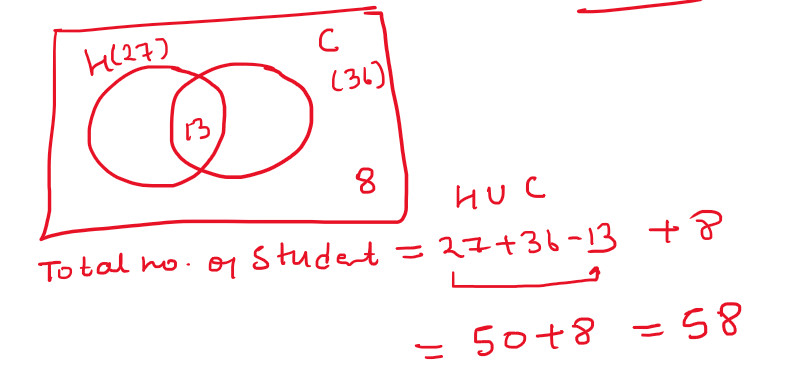 H(27) C
(36)
13
8
H U C
Total no. of Student = 27+36-13 + 8
= 50+8 = 58